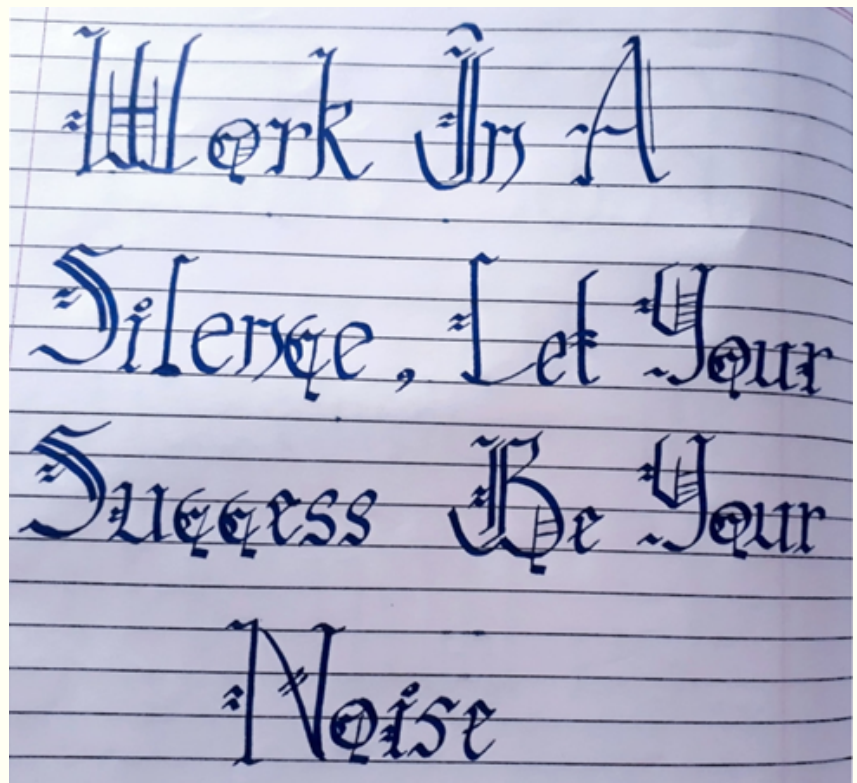 Work In A
Silence, Let Your
Success Be Your
Noise